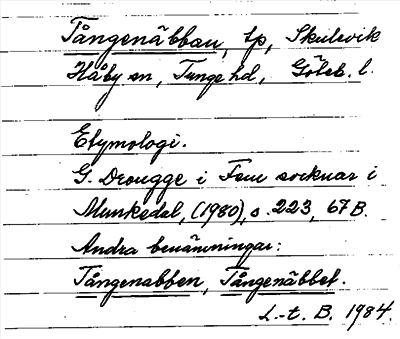 Tångenäbbau, tp, Skulevik
Håby sn, Tunge hd, Göteb. l.
Etymologi.
G. Drougge i Fem socknar i
Munkedal, (1980), s. 223, 67B.
Andra benämningar:
Tångenabben, Tångenäbbet.
L-t. B. 1984.